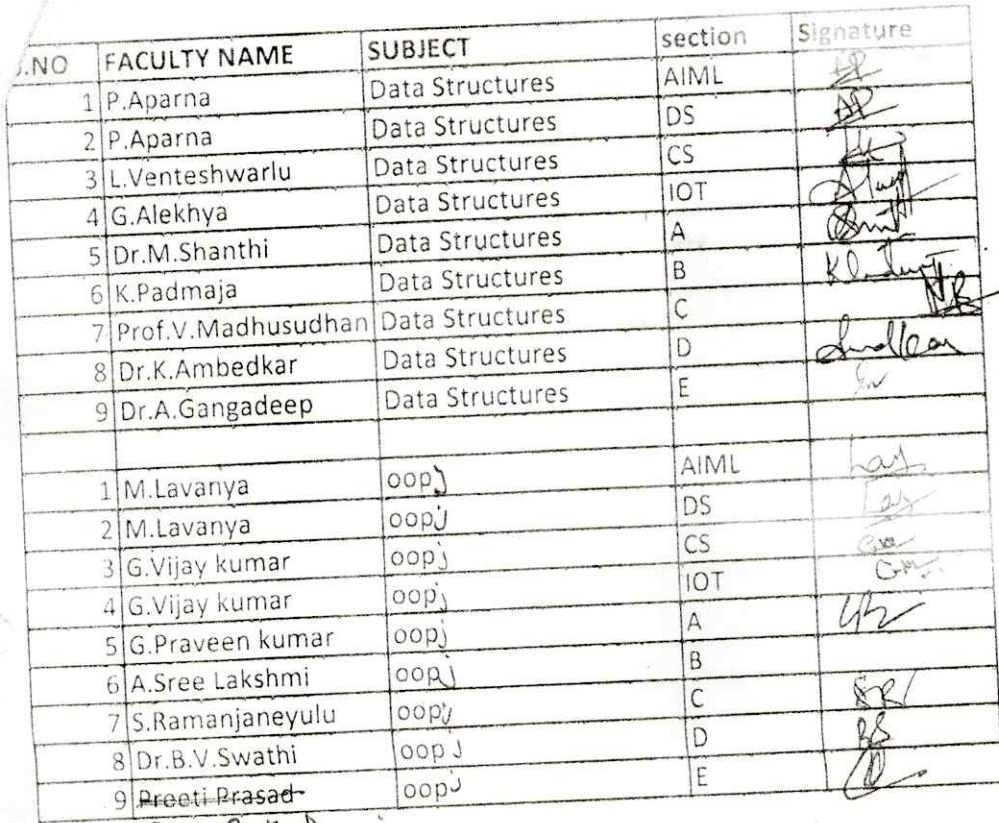 .NO FACULTY NAME SUBJECT section Signature
1 P.Aparna Data Structures AIML
2 P.Aparna Data Structures DS
3 L.Venteshwarlu Data Structures CS
4 G.Alekhya Data Structures IOT
5 Dr.M.Shanthi Data Structures A
6 K.Padmaja Data Structures B
7 Prof.V.Madhusudhan Data Structures C
8 Dr.K.Ambedkar Data Structures D
9 Dr.A.Gangadeep Data Structures E
1 M.Lavanya oopj AIML Lay
2 M.Lavanya oopj DS Lay
3 G.Vijay kumar oopj CS
4 G.Vijay kumar oopj IOT
5 G.Praveen kumar oopj A
6 A.Sree Lakshmi oopj B
7 S.Ramanjaneyulu oopj C
8 Dr.B.V.Swathi oopj D
9 Preeti Prasad oopj E